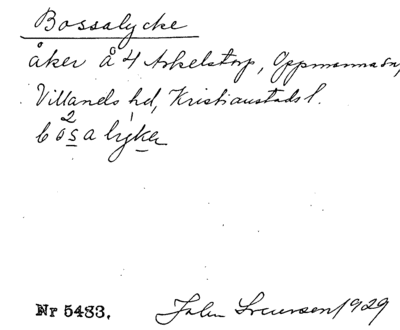 Bossalycke
åker å 4 Arkelstorp, Oppmanna sn,
Villands hd, Kristianstads l.
2
bosa lyker
Nr 5483. John 1929